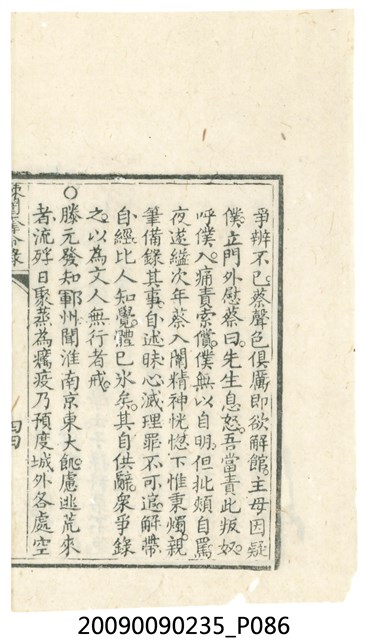 爭辨不已蔡聲色俱厲即欲解館主母因疑
僕立門外慰蔡曰先生息怒吾當責此叛奴
呼僕入痛責索償僕無以自明但批頰自罵
夜遂縊次年蔡入闈精神恍惚下惟秉燭親
筆備錄其事自述昧心滅理罪不可逭解帶
自經比人知覺體已氷矣其自供辭衆爭錄
之以為文人無行者戒
○滕元發知鄆州聞淮南京東大饑慮逃荒來
者流殍日聚蒸為癘疫乃預度城外各處空
20090090235_P086